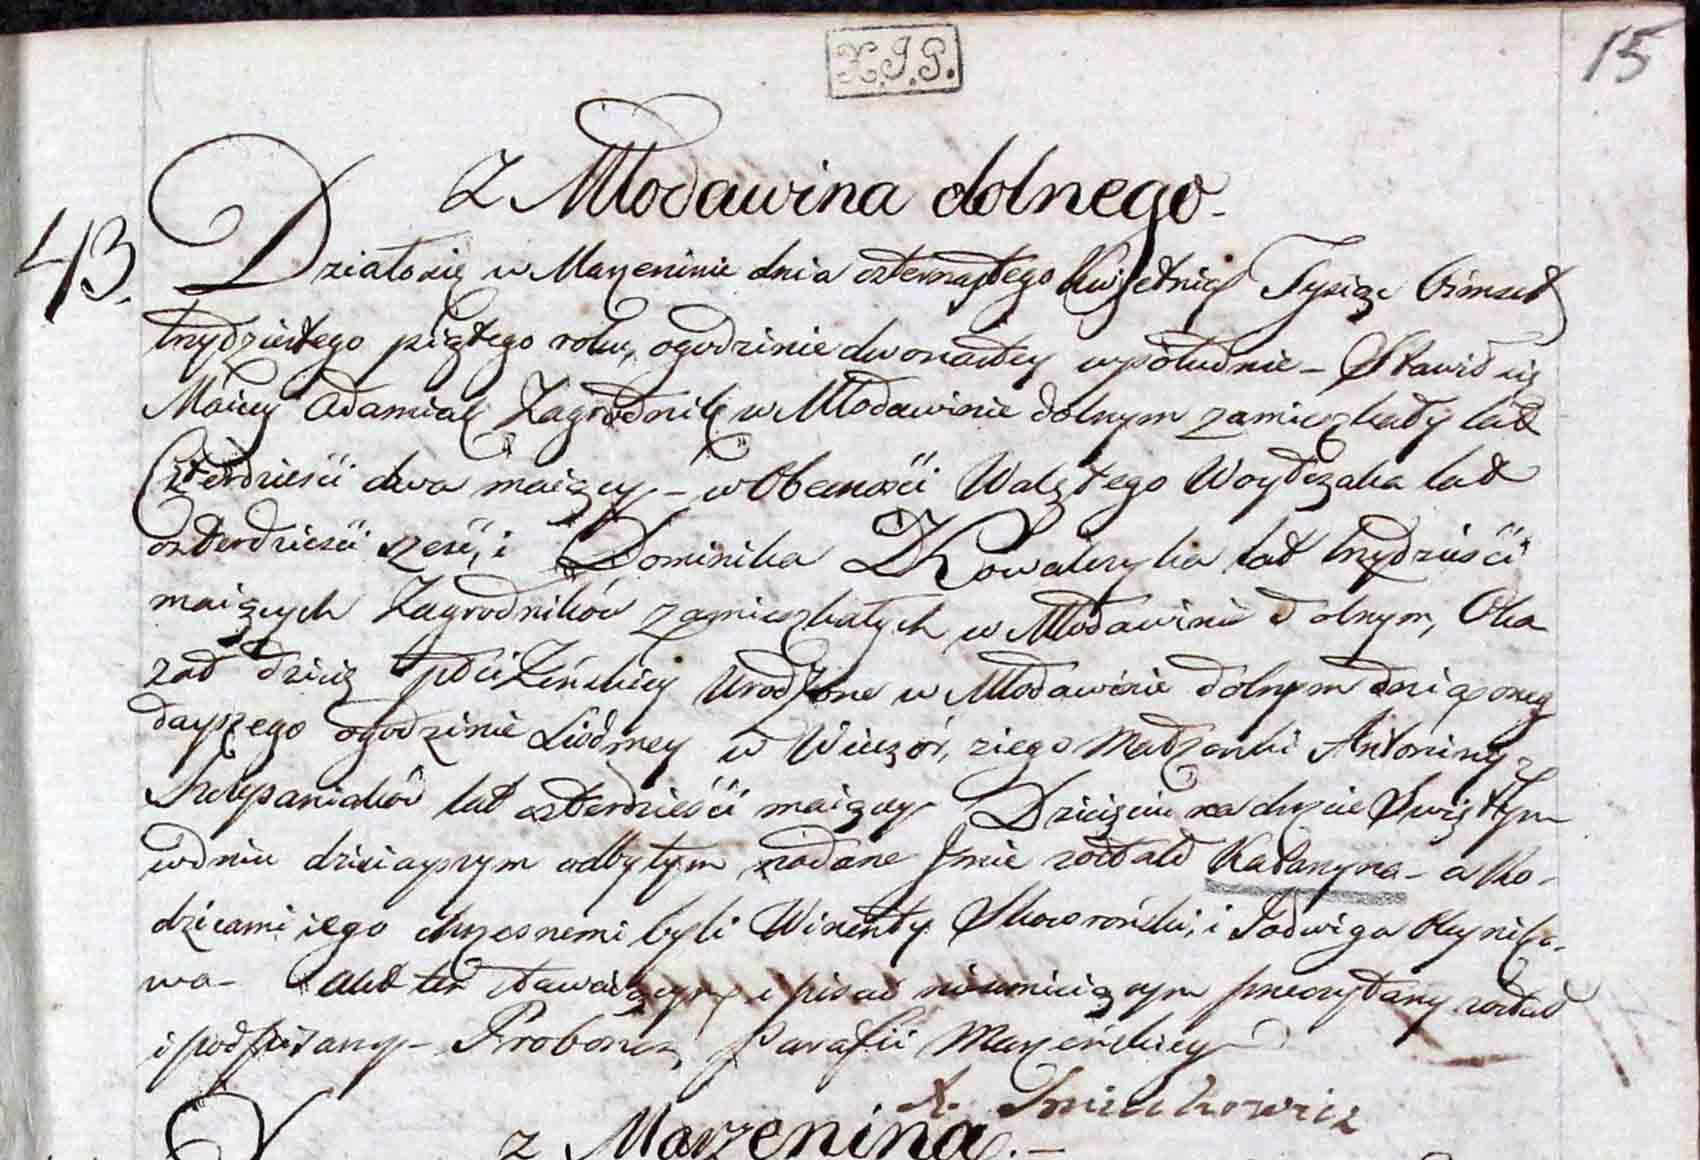 X.J.P.
15
Z Młodawina dolnego.
43.
Działo się w Marzeninie dnia czternastego Kwietnia Tysiąc Ośmset
trzydziestego piątego roku, o godzinie dwonastey w południe – Stawił się
Maciey Adamiak Zagrodnik w Młodawinie dolnym zamieszkały lat
Czterdzieści dwa maiący – w Obecności Walętego Woytczaka lat
czterdzieści sześć, i Dominika Kowalczyka lat trzydzieści
maiących Zagrodników zamieszkałych w Młodawinie dolnym, Oka
zał dziecię płci Żeńskiey Urodzone w Młodawinie dolnym dnia oneg
dayszego o godzinie siódmey w Wieczór, z iego Małżonki Antoniny z
Szczepaniaków lat czterdzieści maiącey Dziecięciu na chrzcie Swiętym
w dniu dzisiayszym odbytym nadane Jmie zostało Katarzyna – a Ro-
dzicami iego chrzesnemi byli Wincenty Skowroński, i Jadwiga
wa – Akt ten stawaiącym i pisać nieumieiącym przeczytany został
i podpisany – Proboszcz Parafii Marzeńskiey
X. Smiechowicz
z Marzenina. –